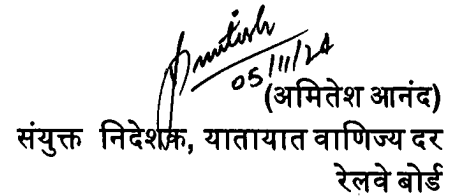 Amitesh
05/11/24
(अमितेश आनंद)
संयुक्त निदेशक, यातायात वाणिज्य दर
रेलवे बोर्ड